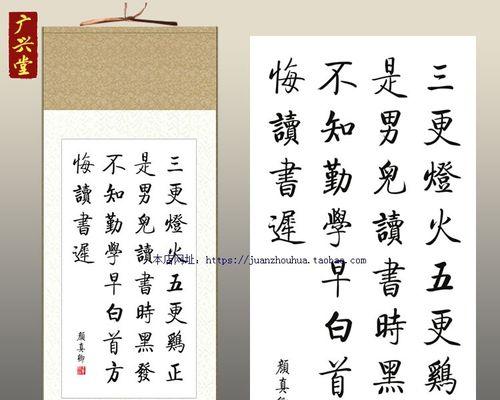 广兴堂
三更燈火五更鷄正
是男兒讀書時黑發
不知勤學早白首方
悔讀書遲
顔真卿
本店网址：https://juanzhouhua.taobao.com
三更燈火五更鷄
是男兒讀書時黑
不知勤學早白首
悔讀書遲
顔真卿